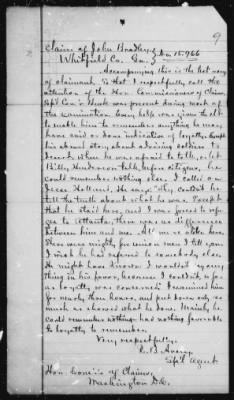 9
Claim of John Bradley } No. 15.966
Whitfield Co. Ga. }
Accompanying this is the test mony
of claimant to that I respectfully call the
attention of the Hon. Commissioners of Claims.
Spl. Com'r was present during most of
the examination. Every help was given to
to enable him to remember anything he may
have said or done indicative of loyalty. Except
his absurd story about advising soldiers to
desert, when he was afraid to talk, or let
Billy Henderson talk, before citizens, he
could remember nothing else. I called on
Jesse Holland. He says "why couldn't he
tell the truth about what he was. Except
that he staid here, and I was forced to refu
gee to Atlanta, there was no difference
between him and me. All me a little here.
There were mighty few union men I tell you
I wish he had referred to somebody else.
He might have known I wouldn't say any
thing in his favor, because I couldn't, so far
as loyalty was concerned. I examined him
for nearly three hours, and put down only so
much as showed what he done. Mainly he
could remember nothing had nothing favorable
to loyalty to remember.
Very respectfully
R. B. Avery
Spl Agent.
Hon. Com'rs of Claims,
Washington D.C.